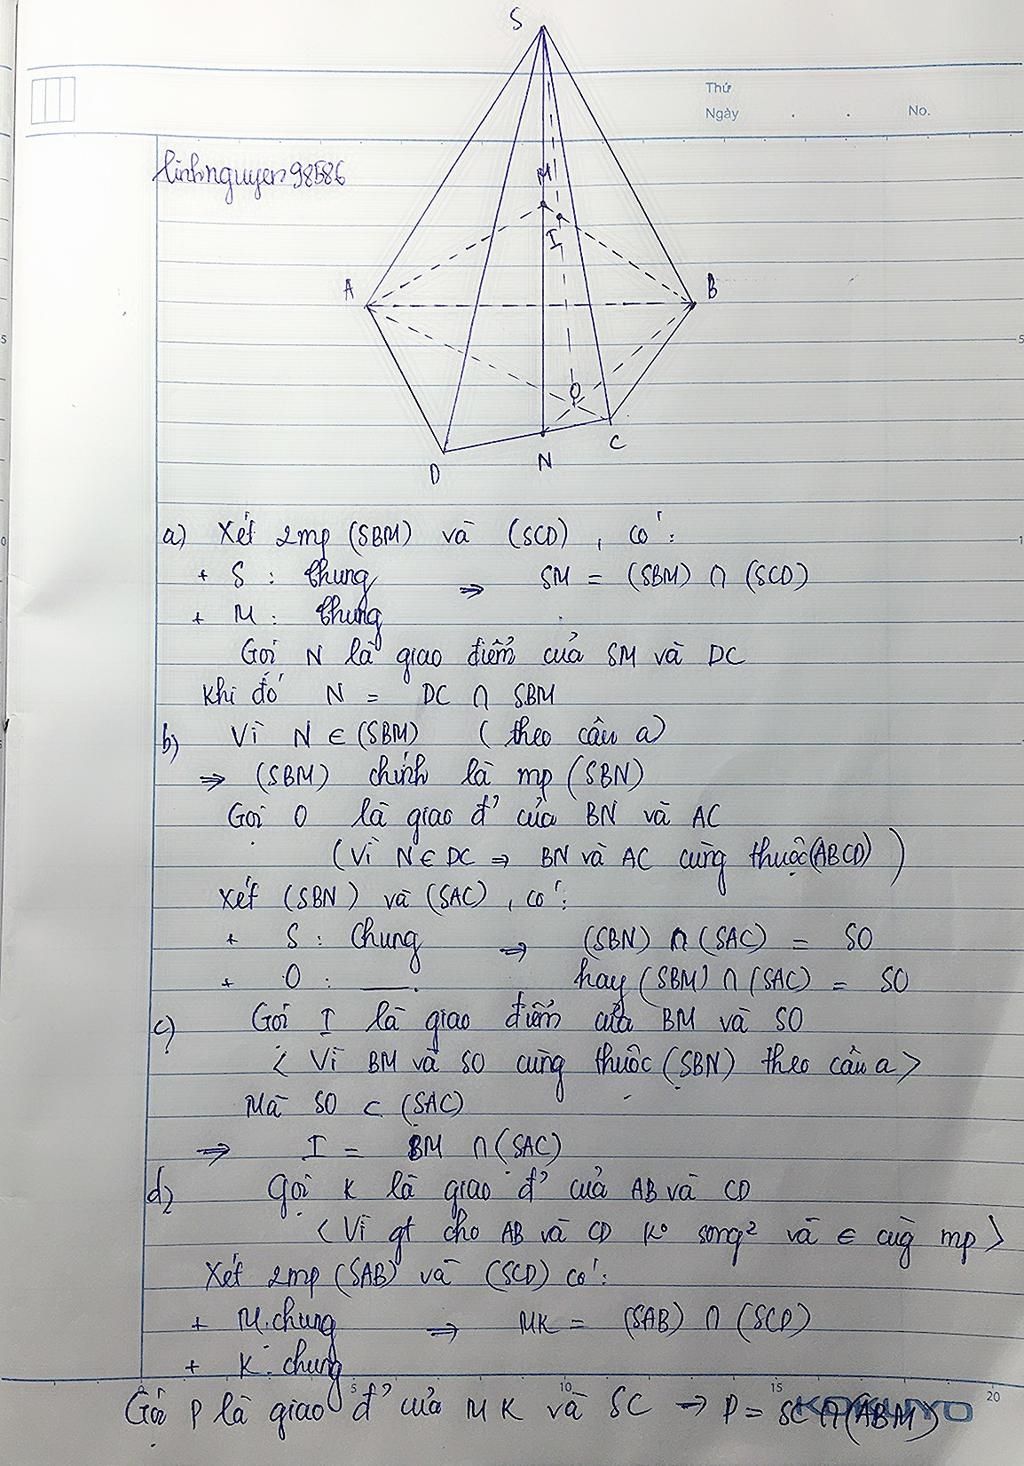 S
Thứ
Ngày . . No.
linhnguyen98586
M
I
A
B
O
D
N
C
a) Xét 2mp (SBM) và (SCD), có:
+ S : Chung ⇒ SM = (SBM) ∩ (SCD)
+ M : Chung
Gọi N là giao điểm của SM và DC
Khi đó N = DC ∩ SBM
b) Vì N ∈ (SBM) (theo câu a)
⇒ (SBM) chính là mp (SBN)
Gọi O là giao đ' của BN và AC
(Vì N ∈ DC ⇒ BN và AC cùng thuộc (ABCD))
Xét (SBN) và (SAC), có:
+ S : Chung ⇒ (SBN) ∩ (SAC) = SO
+ O : ___. hay (SBM) ∩ (SAC) = SO
c) Gọi I là giao điểm của BM và SO
< Vì BM và SO cùng thuộc (SBN) theo câu a>
Mà SO ⊂ (SAC)
⇒ I = BM ∩ (SAC)
d) Gọi K là giao đ' của AB và CD
< Vì gt cho AB và CD k° song² và ∈ cùg mp >
Xét 2mp (SAB) và (SCD) có:
+ M: chung ⇒ MK = (SAB) ∩ (SCD)
+ K: chung
Gọi P là giao đ' của MK và SC → P = SC ∩ (ABM)
5 10 15 20
KOKUYO